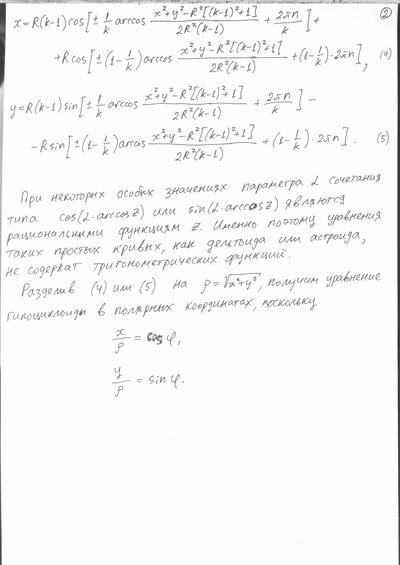 x=R(k-1)cos[± 1/k arccos (x²+y²-R²[(k-1)²+1])/(2R²(k-1)) + 2πn/k] + ②
+Rcos[±(1-1/k)arccos (x²+y²-R²[(k-1)²+1])/(2R²(k-1)) +(1-1/k)·2πn], (4)
y=R(k-1)sin[± 1/k arccos (x²+y²-R²[(k-1)²+1])/(2R²(k-1)) + 2πn/k] –
–Rsin[±(1-1/k)arccos (x²+y²-R²[(k-1)²+1])/(2R²(k-1)) +(1-1/k)·2πn]. (5)
При некоторых особых значениях параметра α сочетания
типа cos(α·arccosz) или sin(α·arccosz) являются
рациональными функциями z. Именно поэтому уравнения
таких простых кривых, как дельтоида или астроида,
не содержат тригонометрических функций.
Разделив (4) или (5) на ρ=√(x²+y²), получим уравнение
гипоциклоиды в полярных координатах, поскольку
x/ρ = cos φ,
y/ρ = sin φ.